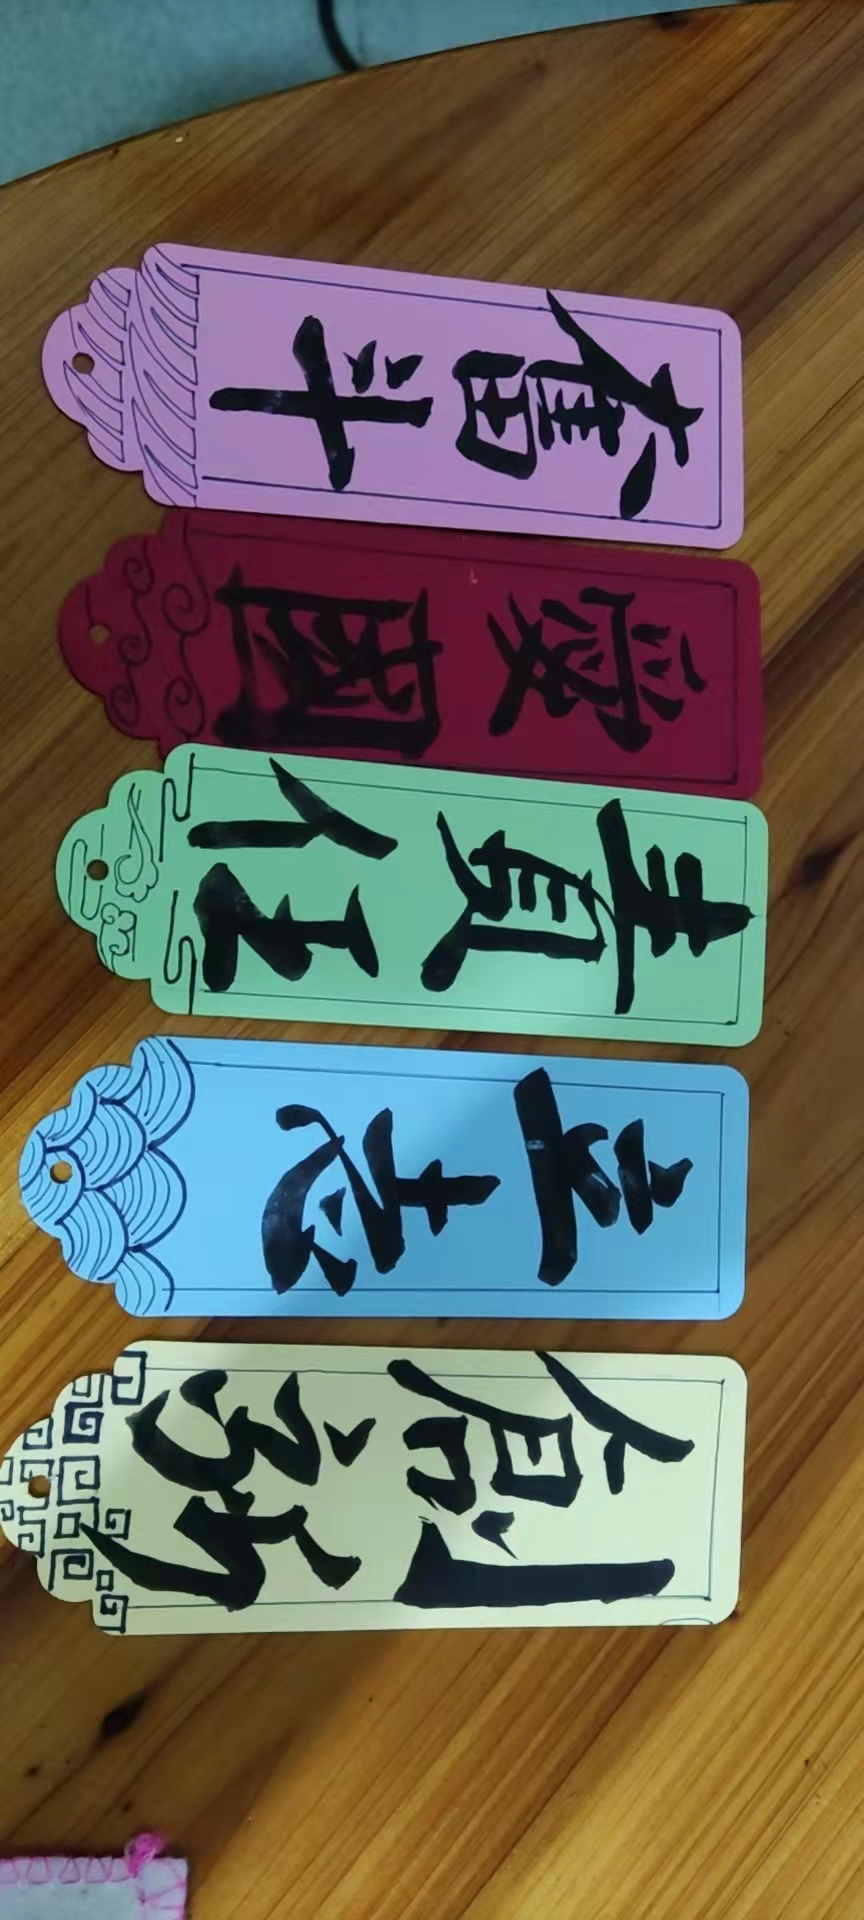 奮斗
愛國
責任
立志
創新